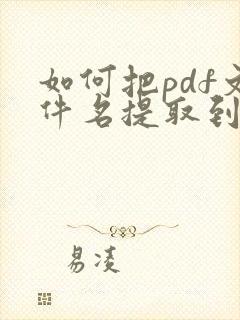 如何把pdf文
件名提取到
易凌